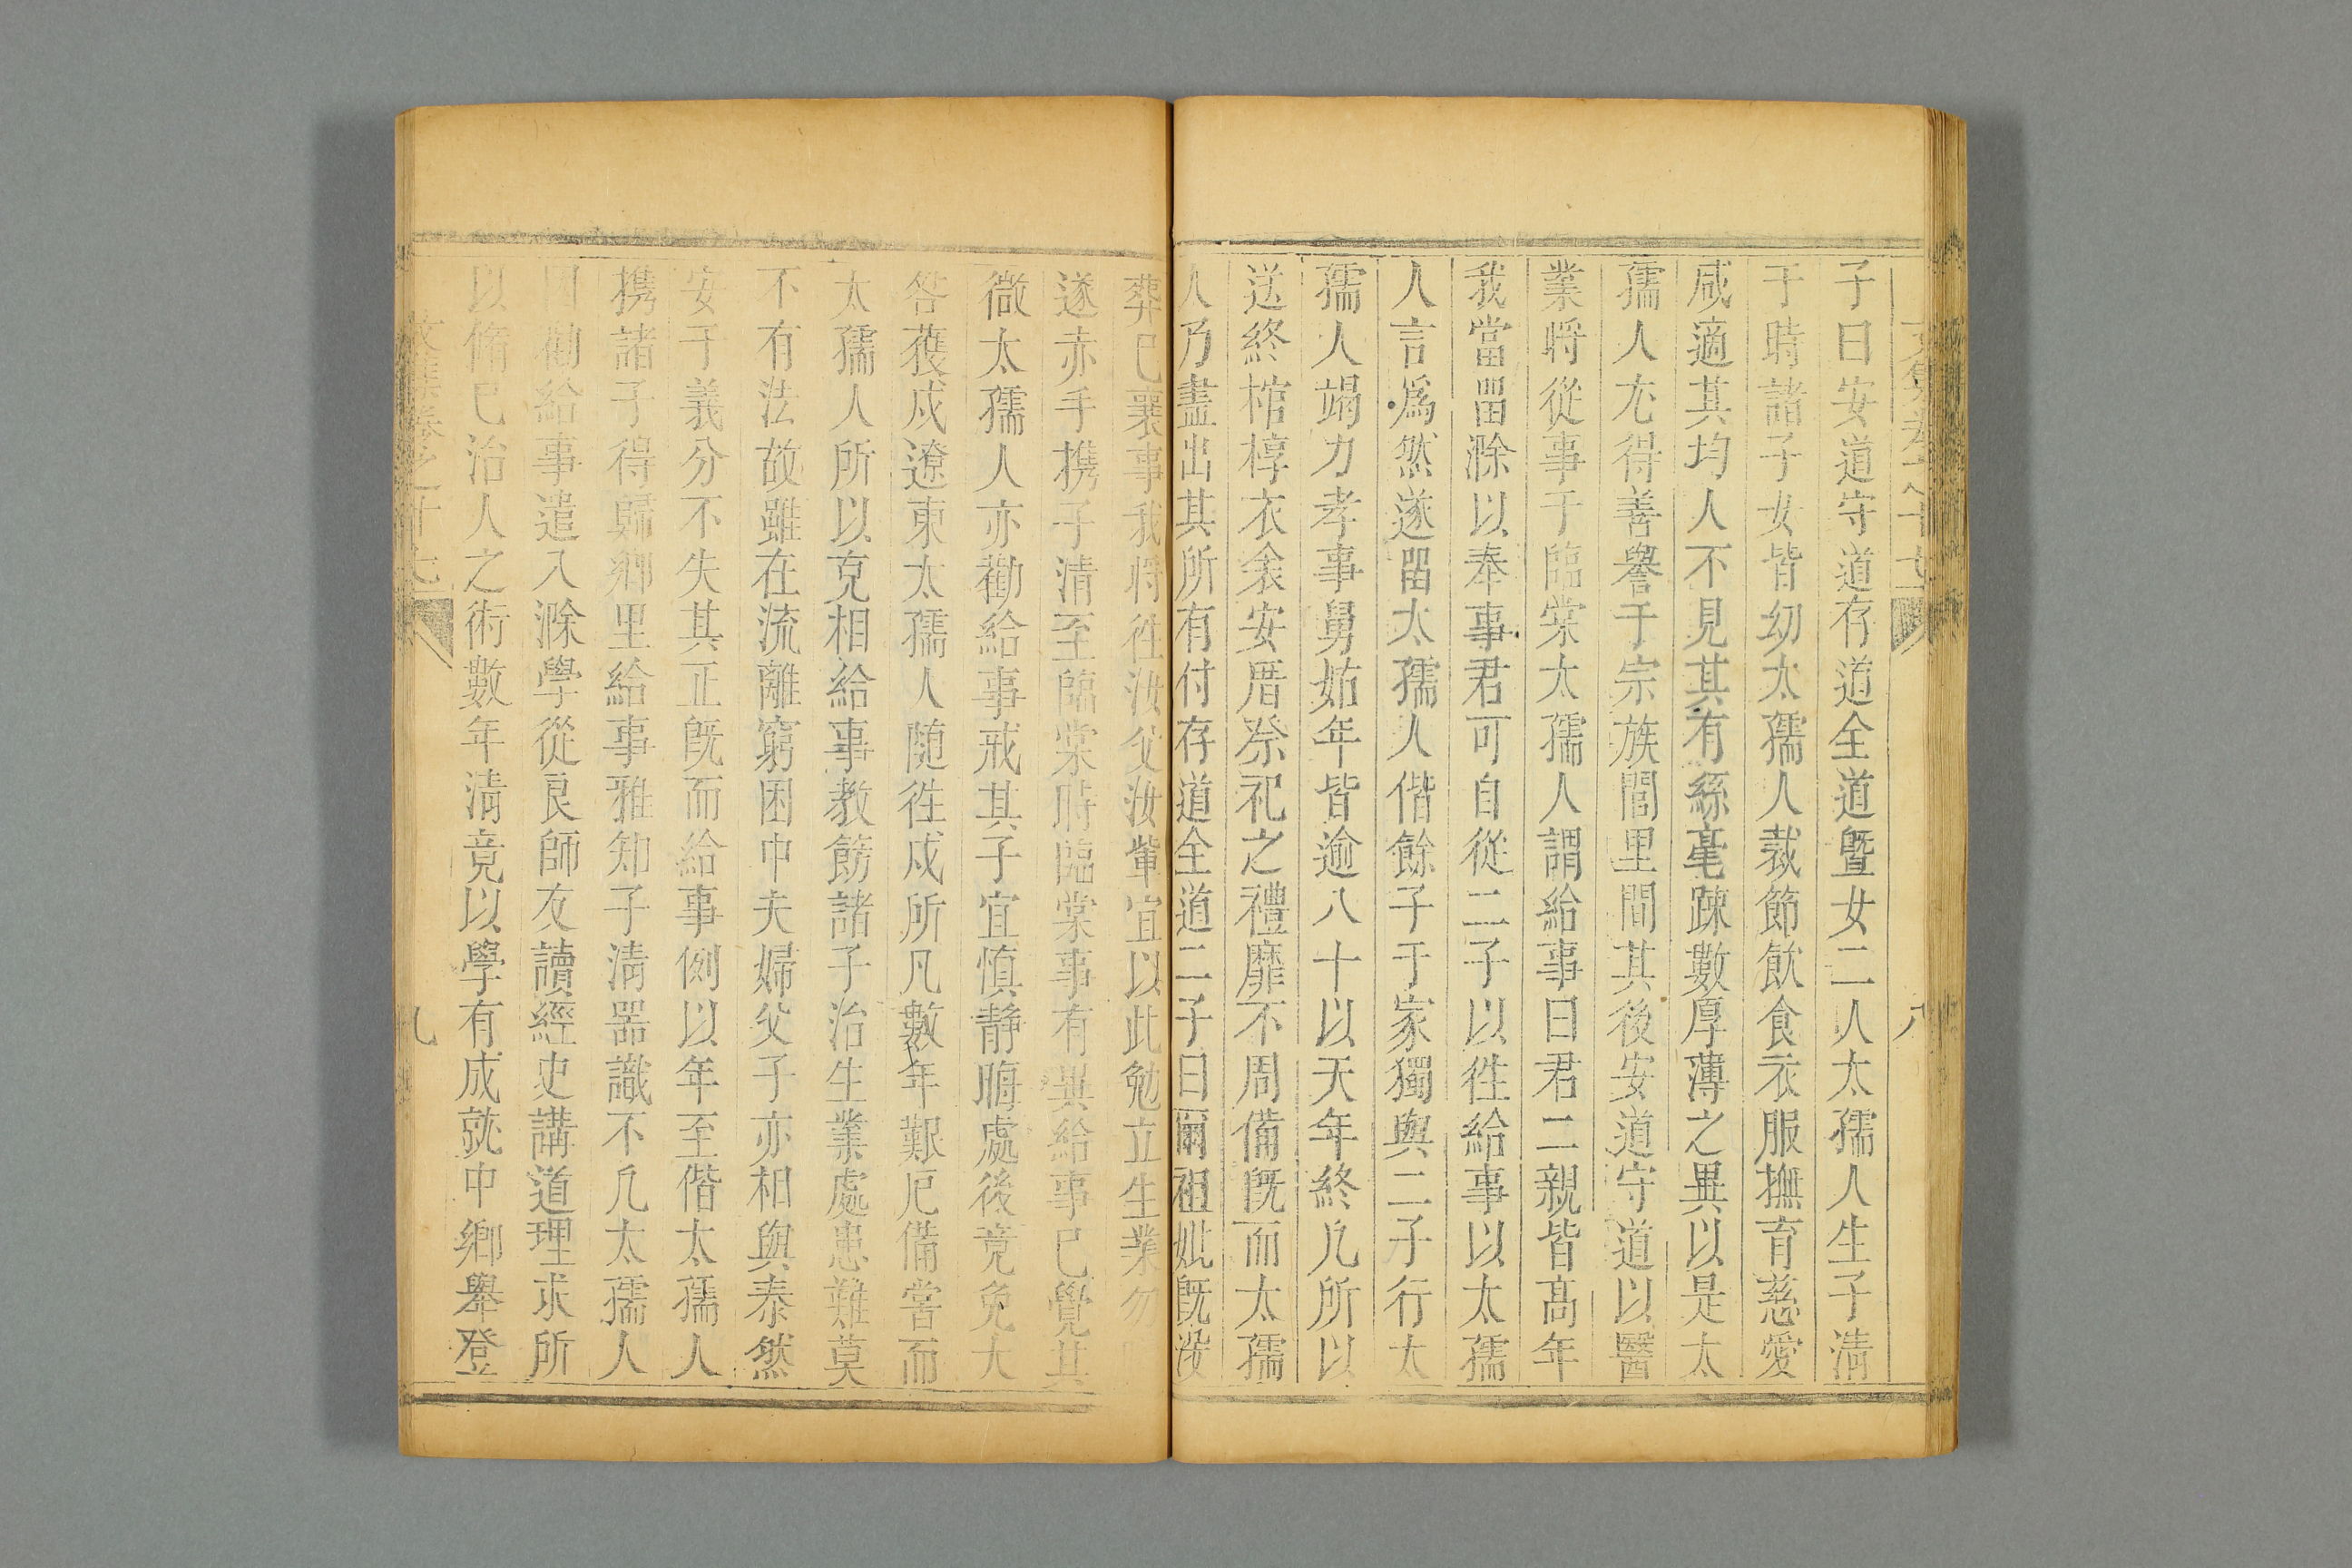 文集卷之十七
八
子曰安道守道存道全道曁女二人太孺人生子清
于時諸子女皆幼太孺人裁節飲食衣服撫育慈愛
咸適其均人不見其有絲毫踈數厚薄之異以是太
孺人尤得善譽于宗族閭里間其後安道守道以醫
業將從事于臨棠太孺人謂給事曰君二親皆髙年
我當畱滁以奉事君可自從二子以徃給事以太孺
人言爲然遂畱太孺人偕餘子于家獨與二子行太
孺人竭力孝事舅姑年皆逾八十以天年終凢所以
送終棺椁衣衾安厝祭祀之禮靡不周備旣而太孺
人乃盡出其所有付存道全道二子曰爾祖妣旣沒
葬已襄事我將徃汝父汝軰宜以此勉立生業勿
遂亦手携子清至臨棠時臨棠事有異給事已覺其
微太孺人亦勸給事戒其子宜慎靜晦處後竟免大
咎獲戍遼東太孺人随徃戍所凡數年艱厄備嘗而
太孺人所以克相給事教飭諸子治生業處患難莫
不有法故雖在流離窮困中夫婦父子亦相與泰然
安于義分不失其正旣而給事例以年至偕太孺人
携諸子得歸鄉里給事雅知子清噐識不凢太孺人
因勸給事遣入滁學從良師友讀經史講道理求所
以脩己治人之術數年清竟以學有成就中鄉舉登
文集卷之十七
九